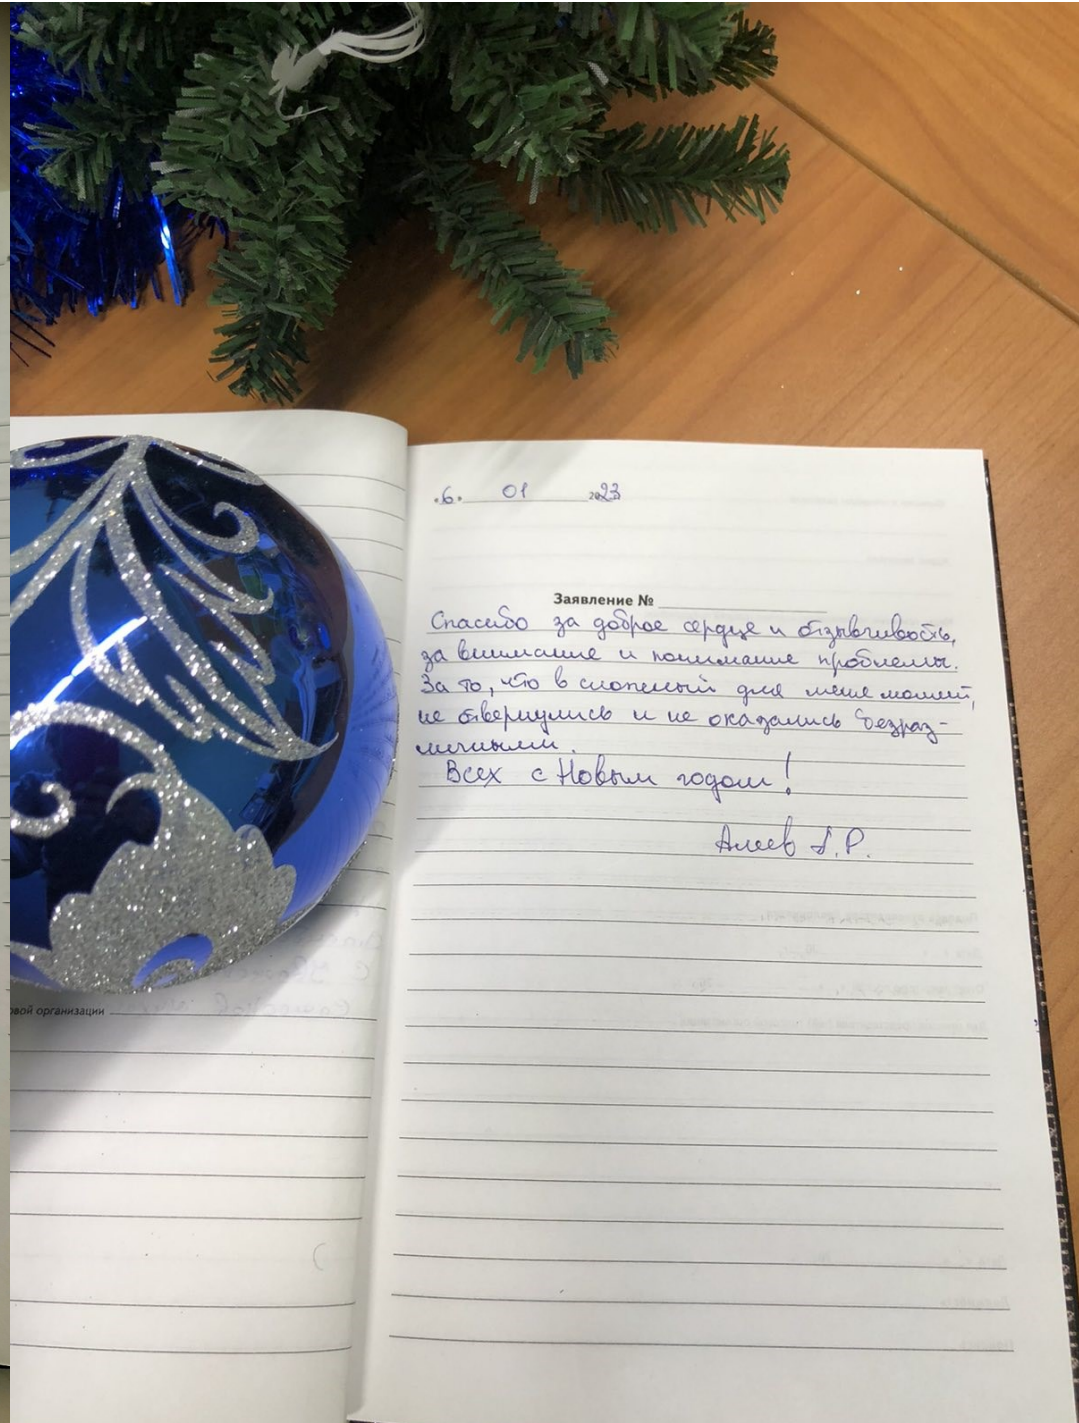 «6» 01 2023
Заявление №
Спасибо за доброе сердце и отзывчивость,
за внимание и понимание проблемы.
За то, что в сложный для меня момент,
не отвернулись и не оказались безраз-
личными.
Всех с Новым годом!
Алеев А.Р.
овой организации